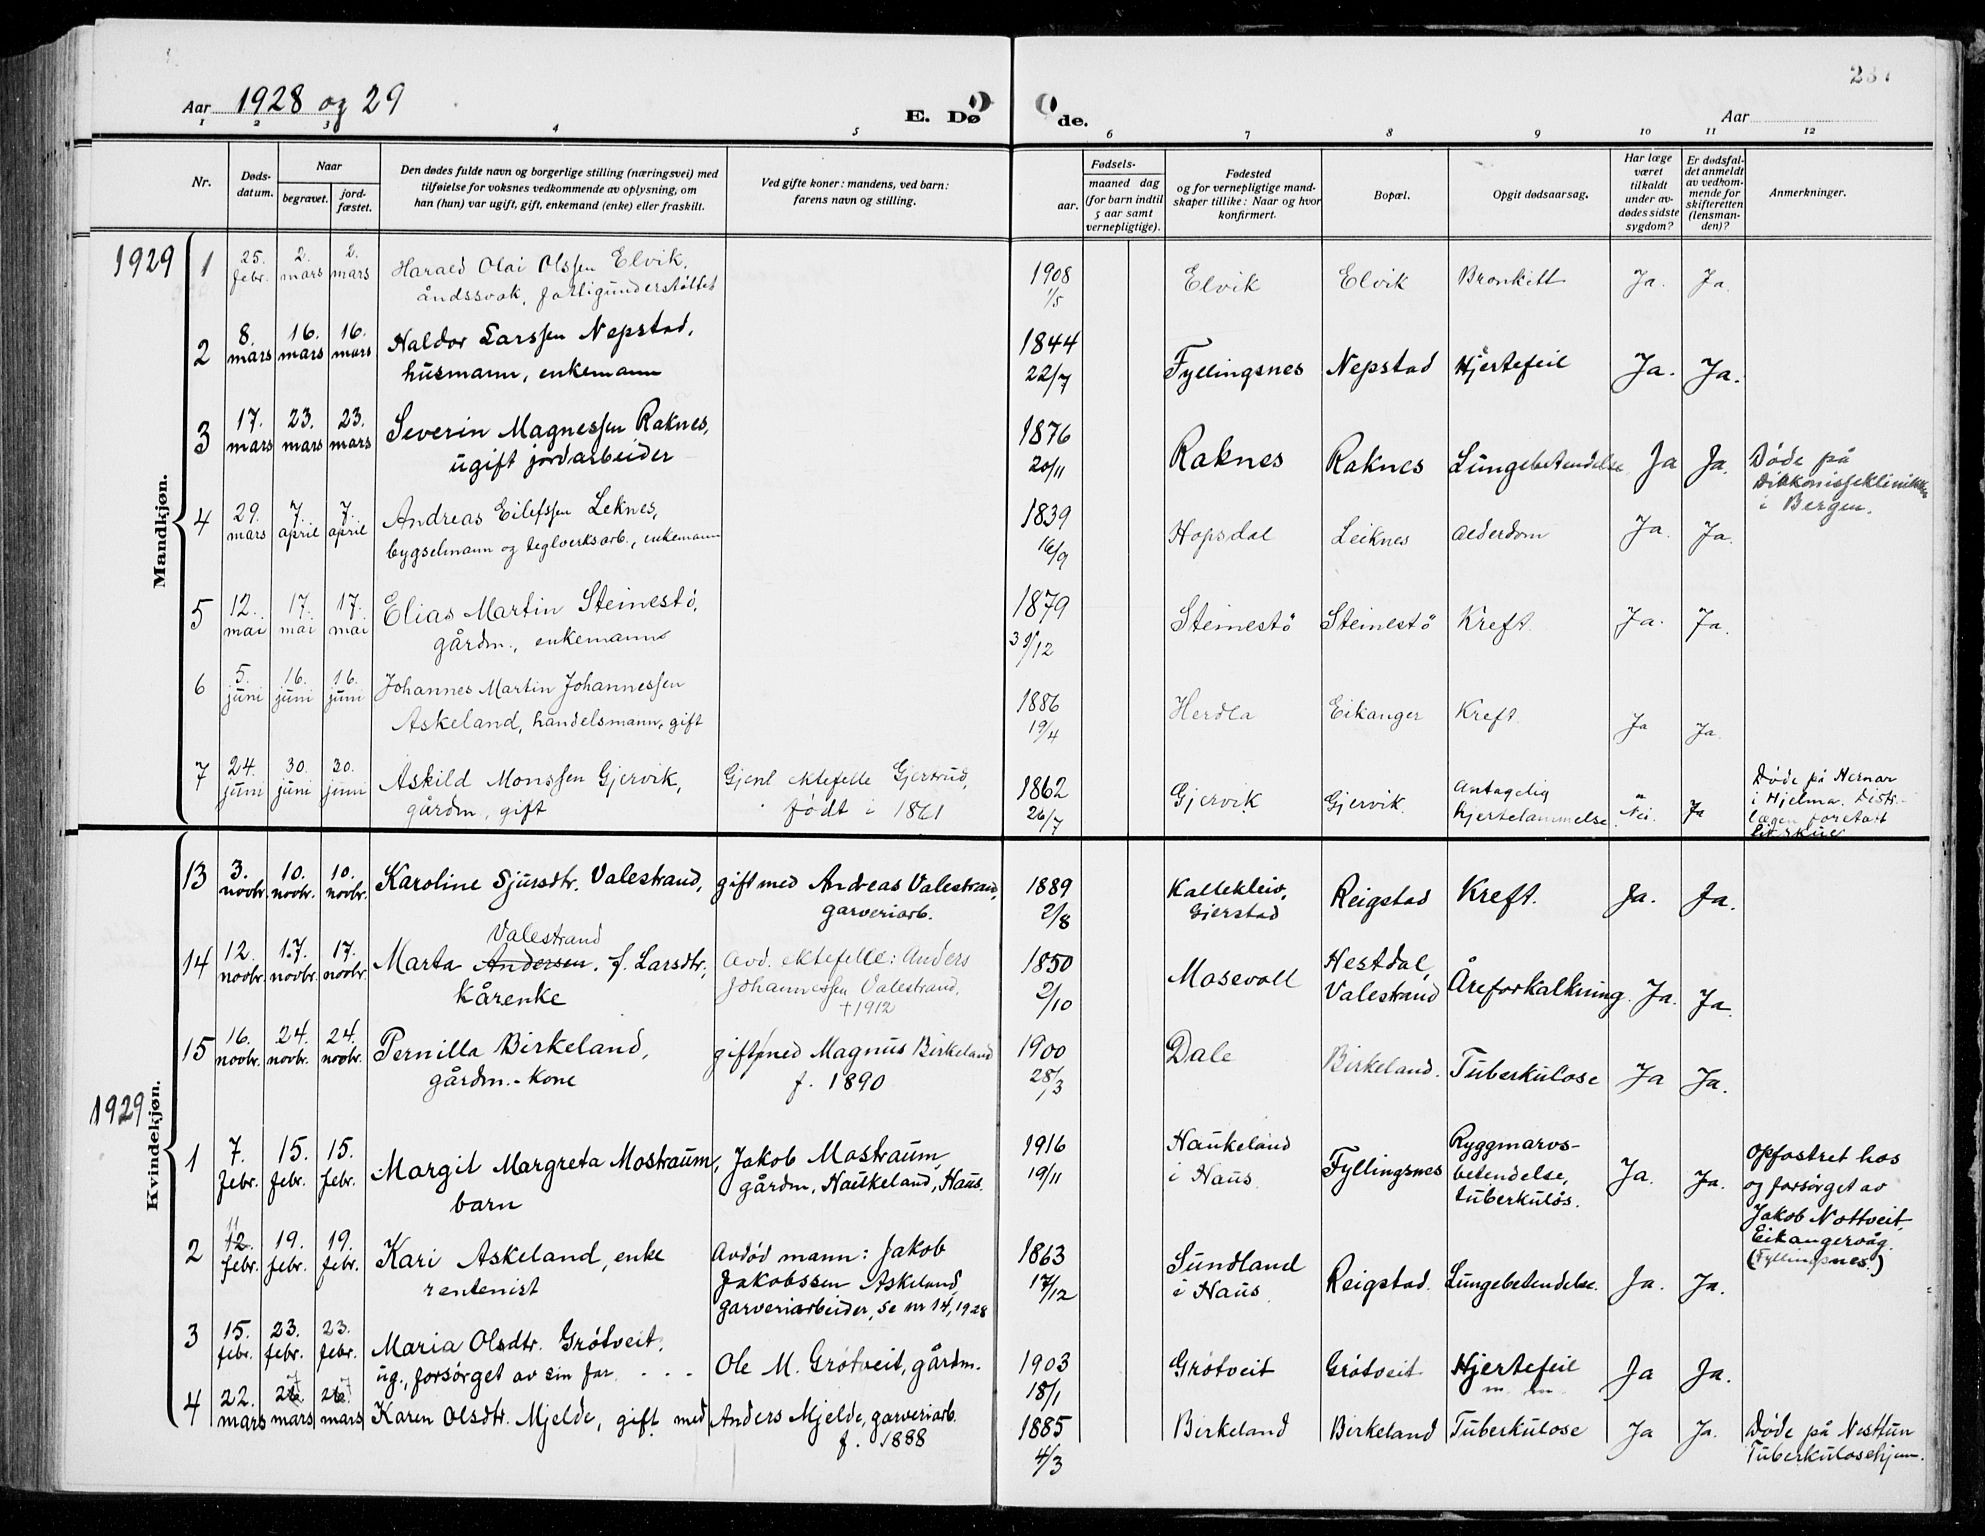 Aar 1928 og 29
E. Dø
de.
Aar
1 2 3 4 5 6 7 8 9 10 11 12
Nr.
Døds-
datum.
Naar
begravet.
jord-
fæstet.
Den dødes fulde navn og borgerlige stilling (næringsvei) med
tilføielse for voksnes vedkommende av oplysning, om
han (hun) var ugift, gift, enkemand (enke) eller fraskilt.
Ved gifte koner: mandens, ved barn:
farens navn og stilling.
Fødsels-
aar.
maaned dag
(for barn indtil
5 aar samt
vernepligtige).
Fødested
og for vernepligtige mand-
skaper tillike: Naar og hvor
konfirmert.
Bopæl.
Opgit dødsaarsag.
Har læge
været
tilkaldt
under av-
dødes sidste
sygdom?
Er dødsfal-
det anmeldt
av vedkom-
mende for
skifteretten
(lensman-
den)?
Anmerkninger.
Mandkjøn.
1929 1 25. febr. 2. mars 2. mars Harald Olai Olssen Elvik, 1908 Elvik Elvik Bronkitt Ja. Ja.
åndssvak, fattigunderstøttet 1/5
2 8. mars 16. mars 16. mars Haldor Larssen Nepstad, 1844 Fyllingsnes Nepstad Hjertefeil Ja. Ja.
husmann, enkemann 22/7
3 17. mars 23. mars 23. mars Severin Magnessen Raknes, 1876 Raknes Raknes Lungebetendelse Ja Ja. Døde på
ugift jordarbeider 20/11 Diakonisseklinikken
i Bergen.
4 29. mars 7. april 7. april Andreas Eilefssen Leknes, 1839 Hopsdal Leiknes Alderdom Ja. Ja.
bygselmann og teglverksarb., enkemann 16/9
5 12. mai 17. mai 17. mai Elias Martin Steinestø, 1879 Steinestö Steinestö Kreft. Ja. Ja.
gårdm., enkemann /12
6 5. juni 16. juni 16. juni Johannes Martin Johannessen 1886 Herdla Eikanger Kreft. Ja Ja.
Askeland, handelsmann, gift 19/4
7 24. juni 30. juni 30. juni Askild Monssen Gjervik, Gjenl ektefelle Gjertrud, 1862 Gjervik Gjervik. Antagelig Nei. Ja Døde på Hernar
gårdm, gift født i 1861 26/7 hjertelammelse i Hjelma. Distr.-
lægen foretatt
likskue
Kvindekjøn.
13 3. novbr. 10. novbr. 10. novbr. Karoline Sjursdtr. Valestrand, gift med Andreas Valestrand, 1889 Kallekleiv, Reigstad Kreft. Ja. Ja.
garveriarb. 2/8 Gjerstad
Valestrand
14 12. novbr. 17. novbr. 17. novbr. Marta Andersen. f. Larsdtr; Avd. ektefelle: Anders 1850 Mosevoll Hestdal, Åreforkalkning. Ja. Ja.
Kårenke Johannessen Valestrand, 2/10 Valestrand
†1912
15 16. novbr. 24. novbr. 24. novbr. Pernilla Birkeland, gift med Magnus Birkeland 1900 Dale Birkeland. Tuberkulose Ja Ja.
gårdm.-kone f. 1890 28/3
1929
1 7. febr. 15. febr. 15. febr. Margit Margreta Mostraum, Jakob Mostraum, 1916 Haukeland Fyllingsnes Ryggmarvs- Ja. Ja. Opfostret hos
barn gårdm, Haukeland, Haus. 19/11 i Haus betendelse, og forsørget av
tuberkuløs. Jakob Nottveit,
Eikangervåg.
(Fyllingsnes.)
11
2 12. febr. 19. febr. 19. febr. Kari Askeland, enke Avdød mann: Jakob 1863 Sundland Reigstad. Lungebetendelse. Ja. Ja.
rentenist Jakobssen Askeland, 17/12 i Haus
garveriarbeider, se nr 14, 1928
3 15. febr. 23. febr. 23. febr. Maria Olsdtr. Grøtveit. Ole M. Grøtveit, gårdm. 1903 Grøtveit Grøtveit Hjertefeil Ja Ja.
ug., forsørget av sin far. - - - 18/1 m. m.
4 22. mars mars mars Karen Olsdtr. Mjelde, gift med Anders Mjelde, garveriarb. 1885 Birkeland Birkeland Tuberkulose Ja Ja. Døde på Nesttun
f. 1888 4/3 Tuberkulosehjem.